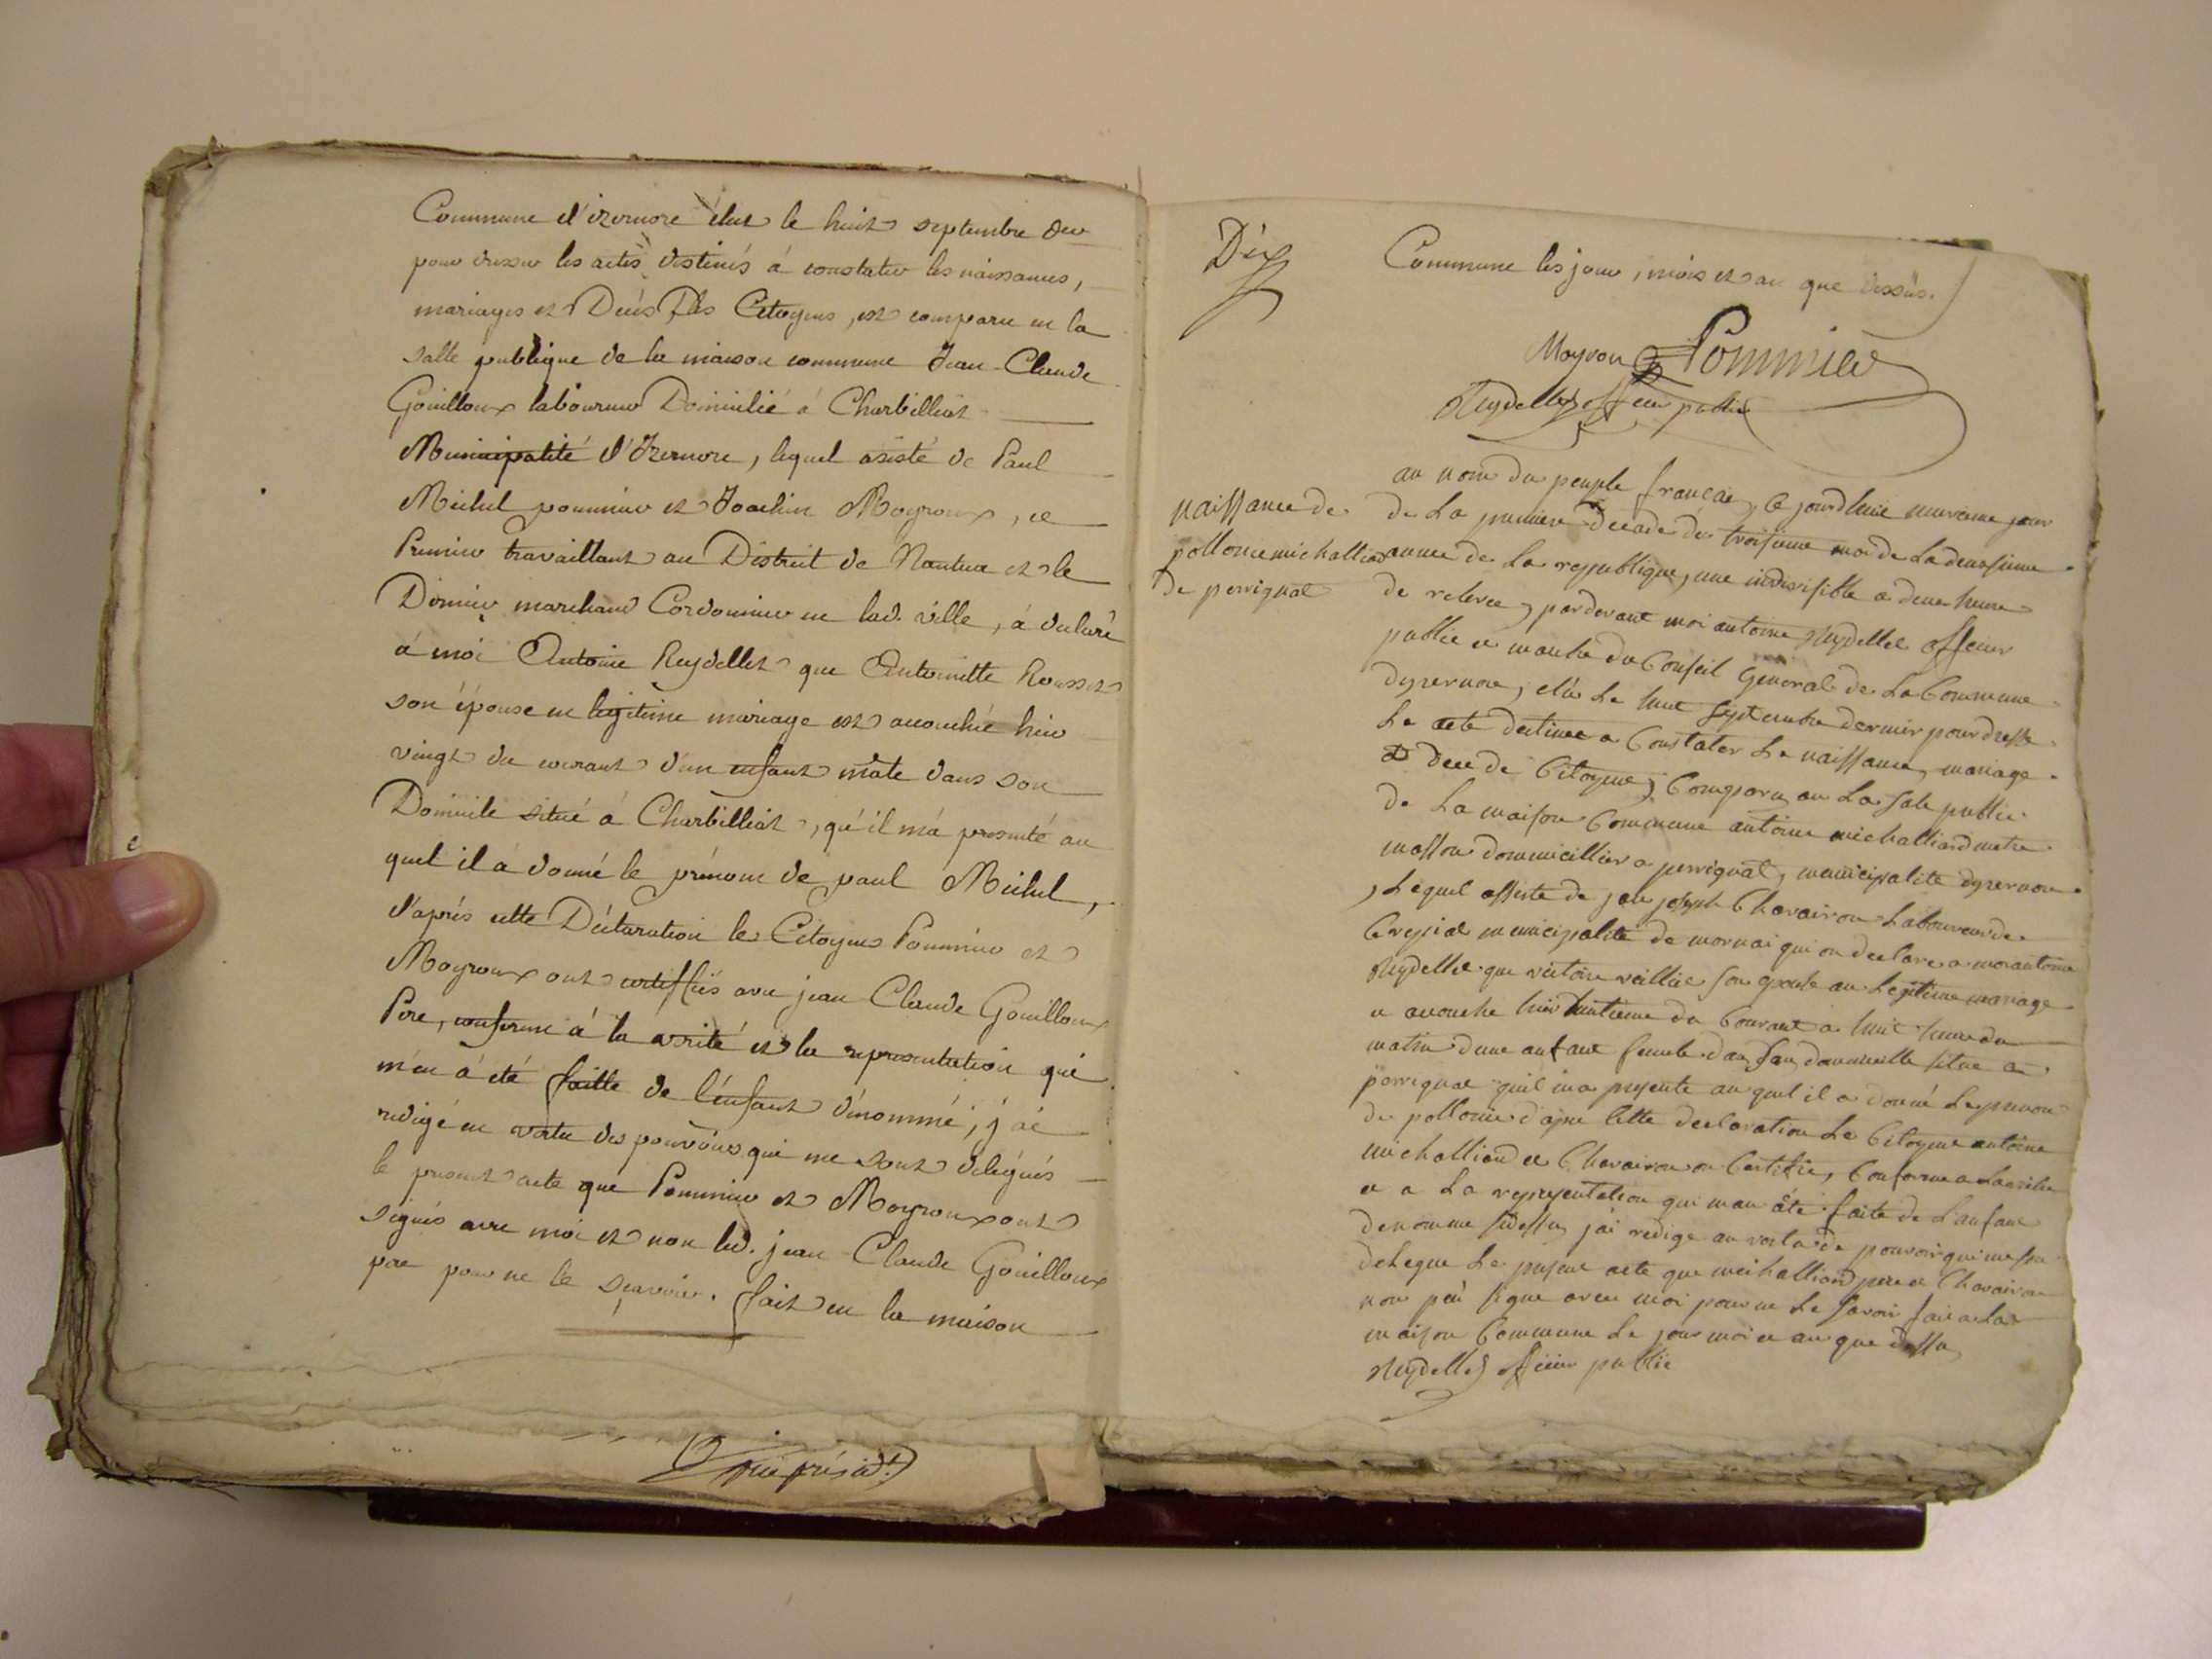 Commune d'izernore élut le huit septembre der
pour dresser les actes destinés á constater les naissances,
mariages et Décés Des Citoyens, est comparu en la
salle publique de la maison commune Jean-Claude
Gouilloux laboureur Domicilié á Charbilliat
Municipalité d'Izernore, lequel asisté de Paul
Michel pommier et Joachim Moyroux, ce
Premier travaillant au District de Nantua et le
Dernier marchand Cordonnier en lad. ville, á declaré
á moi Antoine Reydellet que Antoinette Rousset
son épouse en légitime mariage est accouchée hier
vingt du courant d'un enfant mâle dans son
Domicile situé á Charbilliat, qu'il má presenté au
quel il á donné le prénom de paul Michel,
d'aprés cette Déclaration les Citoyens Pommier et
Moyroux ont certiffiés avec jean Claude Gouilloux
Pere, conforme á la vérité et la representation qui
m'en á eté faitte de l'énfant dénommé; j'ai
redigé en vertu des pouvoirs qui me sont délégués
le present acte que Pommier et Moyroux ont
signés avec moi et non led. jean Claude Gouilloux
pere pour ne le sçavoir. fait en la maison
Dix
Commune les jour, mois et an que dessus.
Moyrou Pommier
Reydellet officier public
naissance de
pollonie michalliard
de perrignat
au nom du peuple français, ce jourdhuie neuvieme jour
de La premiere decade du troisieme moi de La deuxsieme
annee de La republique, une indivisible a deux heure
de relevee, pardevant moi antoine Reydellet officier
public et manbre du Conseil General de La Commune
dyzernore, elu Le huit septembre dernier pour dresse
Le acte destinee a Constater Le naissance, mariage
et decé de Citoyens, Comparu an La sale public
de La maison Commune antoine michalliard metre
masson dommicillier a perrignat, municipalite dyzernore
, Lequel assiste de jan joseph Chavairon Laboureur de
Crepiat municipalité de mornai qui on declare a moi antoine
Reydellet que victoire son epouse an Legitime mariage
a acouche hier huitieme du Courant a huit heure du
matin dune anfant femele dan son dommicille situe a
perrignat quil ma presente au quel il a donné Le prenon
de pollonie dapre Cette declaration Le Citoyens antoine
michalliard et Chavairon on Certifie, Conforme a La verite
et a La representation qui man áté faite de Lanfant
denomme sidessu jai redige an vertu de pouvoir qui me son
delegue Le present acte que michalliard pere et Chavairon
non peú signe avec moi pour ne Le savoir fai a La
maison Commune Le jour moi et an que dessu
Reydellet officier public